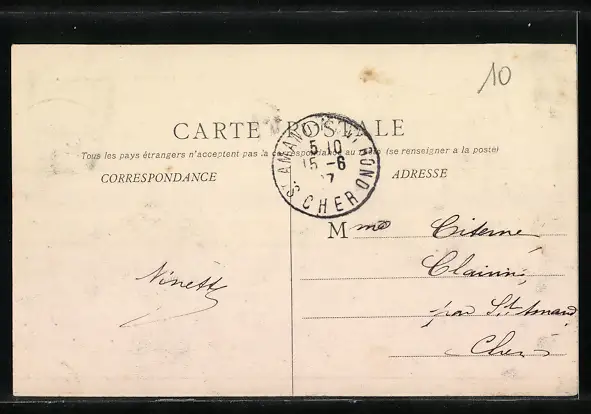 10
CARTE POSTALE
Tous les pays étrangers n'acceptent pas la correspondance au recto (se renseigner à la poste)
CORRESPONDANCE
ADRESSE
ST AMAND MONTROND
5 10
15 -6
07
CHER
Mme Citerne
Ninette
par St Amand
Cher